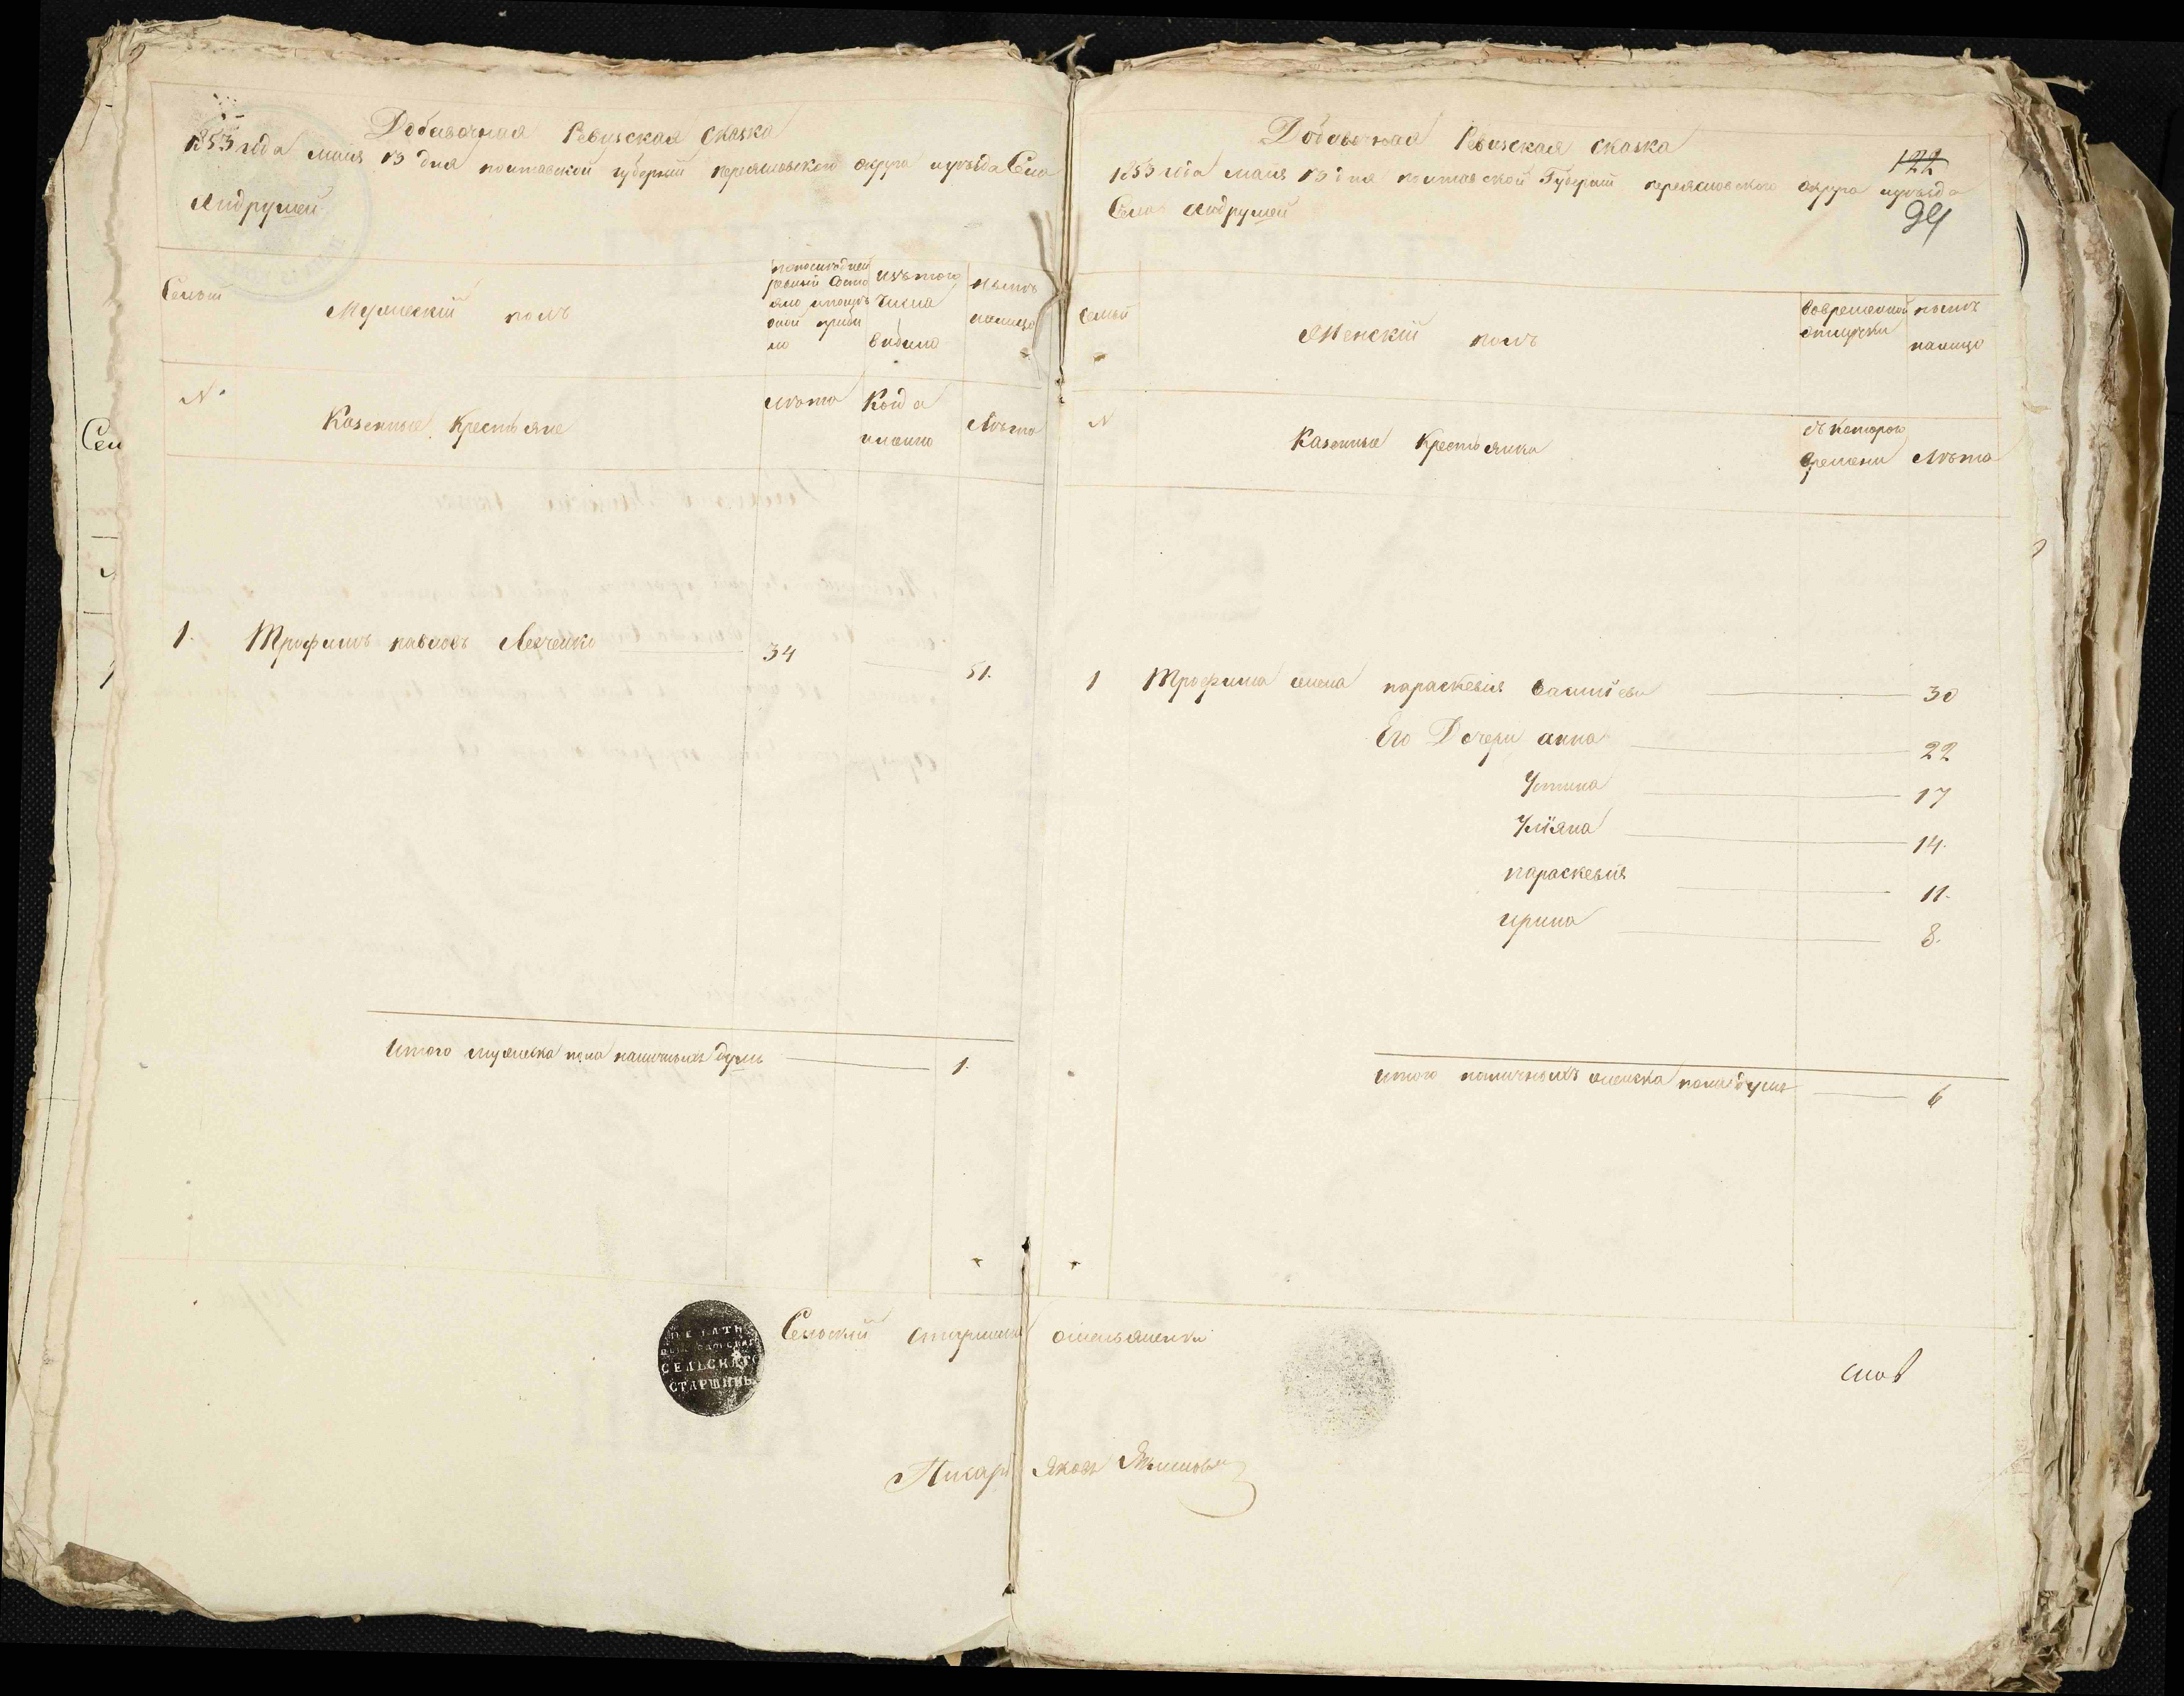 Добавочная Ревизская Сказка
1853 года мая 13 дня полтавской губернии переясловской округа и уезда Села
Андрушей
Семьи
Мужеский полъ
изътого
числа
выбыло
ныне
налицо
№
Казенные Крестьяне
Лета
Когда
именно
Лета
1. Трофимъ павловъ Левченко 34 51.
Итого мужеска пола наличныхъ душъ 1.
Добавочная Ревизская сказка
122
1853 года мая 13 дня полтавской Губернии переясловского округа и уезда
94
Села Андрушей
Семьи
Женский полъ
Вовременной
отлучки
ныне
налицо
N
Казенные Крестьянки
съкоторого
времени
Лета
1 Трофима жена параскевия 30
Его Дочери анна 22
Устина 17
Улїяна 14.
параскевия 11.
ирина 8.
итого наличныхъ женска пола душъ 6
ПЕЧАТЬ
СЕЛЬСКАГО
СТАРШИНЫ
Сельский старшина омельяненко
Писарь Яковъ